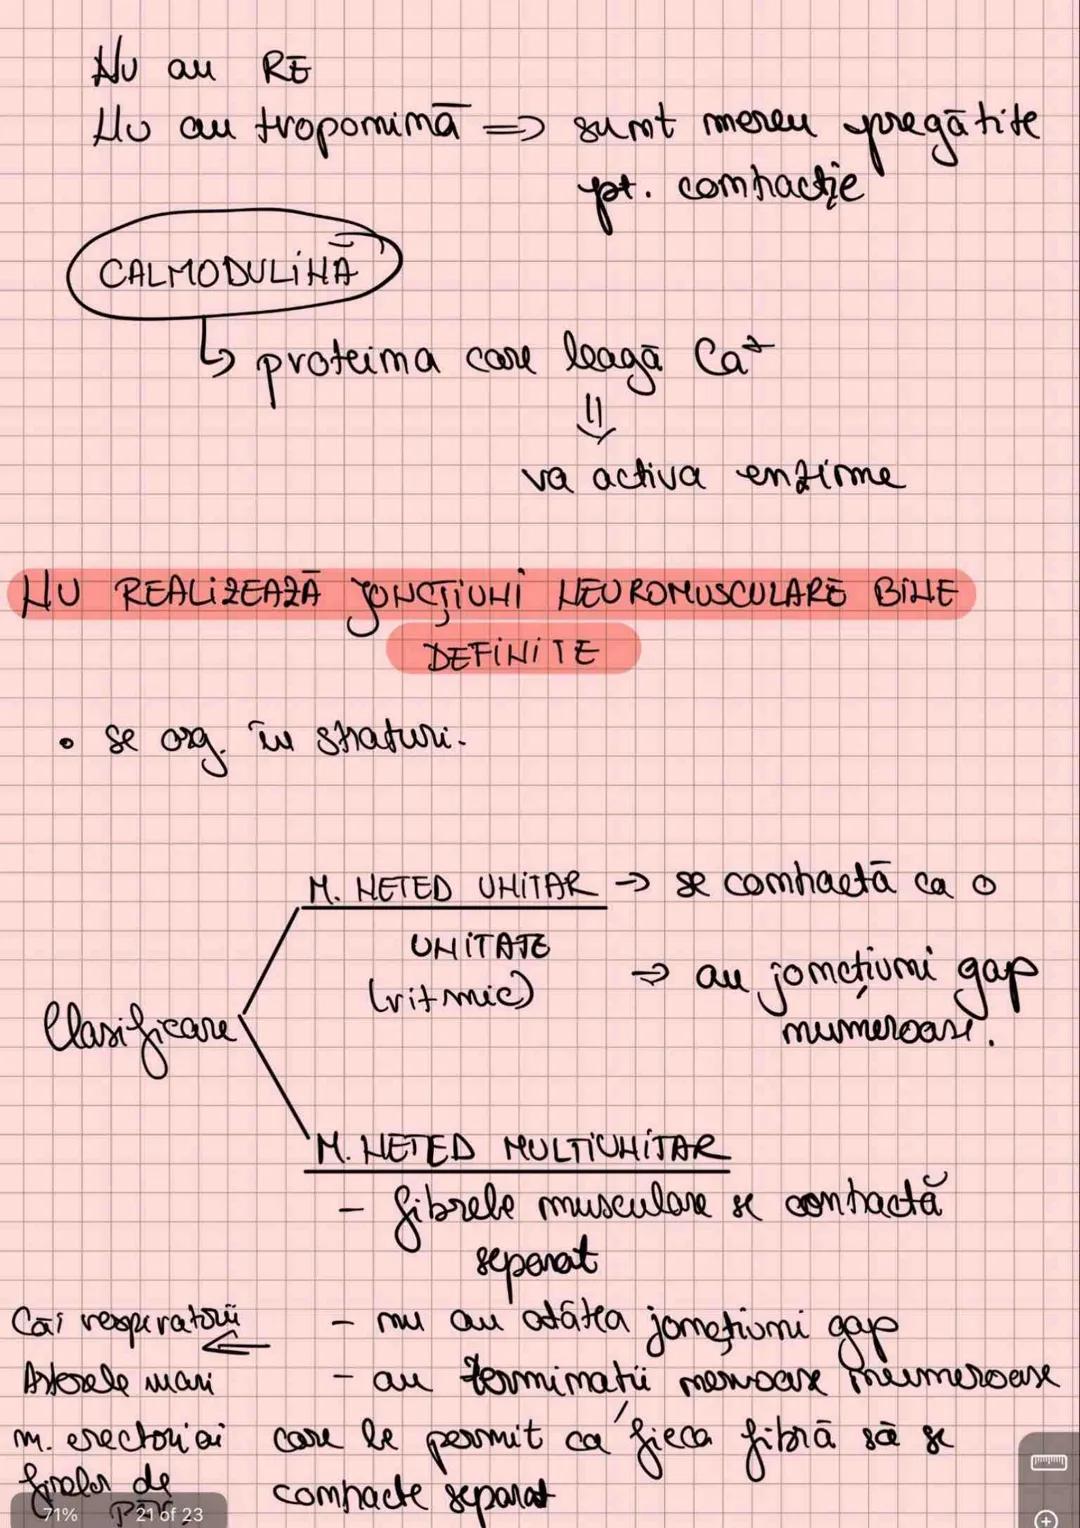 Nu au RE
Nu au troponină => sunt mereu pregătite
pt. contracție
CALMODULINĂ
↳ proteina care leagă Ca+
⇓
va activa enzime
NU REALIZEAZĂ JONCȚIUNI NEUROMUSCULARE BINE
DEFINITE
• se org. în straturi.
Clasificare
M. NETED UNITAR → se contractă ca o
UNITATE
(ritmic)
⇒ au joncțiuni gap
numeroase.
M. NETED MULTIUNITAR
- fibrele musculare se contractă
separat
- nu au atâtea joncțiuni gap
- au terminații nervoase numeroase
care le permit ca fieca fibră să se
contracte separat
Căi respiratorii ⇐
Arterele mari
m. erectori ai
firelor de
păr
71% 21 of 23